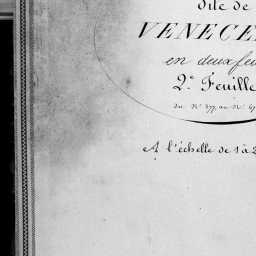 dite de
VENECE
en deux feu
2.e Feuille
du N.o 377 au N.o 6
A l'échelle de 1 à 2